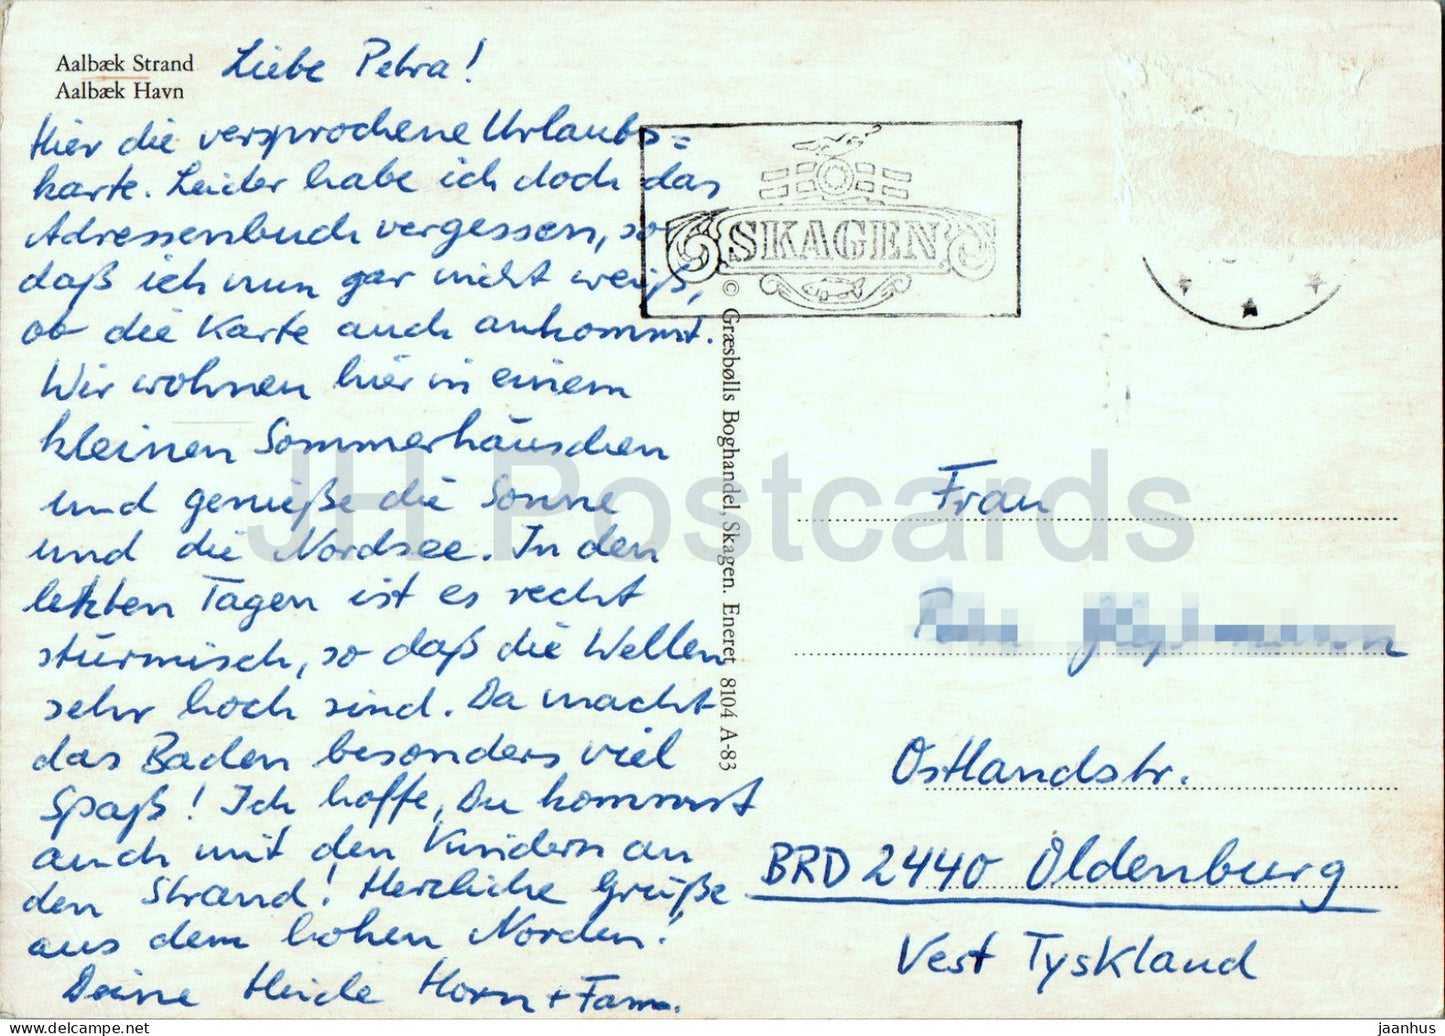 Aalbæk Strand
Aalbæk Havn
Liebe Petra!
Hier die versprochene Urlaubs=
karte. Leider habe ich doch das
Adressenbuch vergessen, so
daß ich nun gar nicht weiß,
ob die Karte auch ankommt.
Wir wohnen hier in einem
kleinen Sommerhäuschen
und genieße die Sonne
und die Nordsee. In den
letzten Tagen ist es recht
stürmisch, so daß die Wellen
sehr hoch sind. Da macht
das Baden besonders viel
Spaß! Ich hoffe, Du kommst
auch mit den Kindern an
den Strand! Herzliche Grüße
aus dem hohen Norden!
Deine Heide Horn + Fam.
SKAGEN
© Græsbølls Boghandel, Skagen. Eneret 8104 A-83
Frau
Ostlandstr.
BRD 2440 Oldenburg
Vest Tyskland
JH Postcards
jaanhus